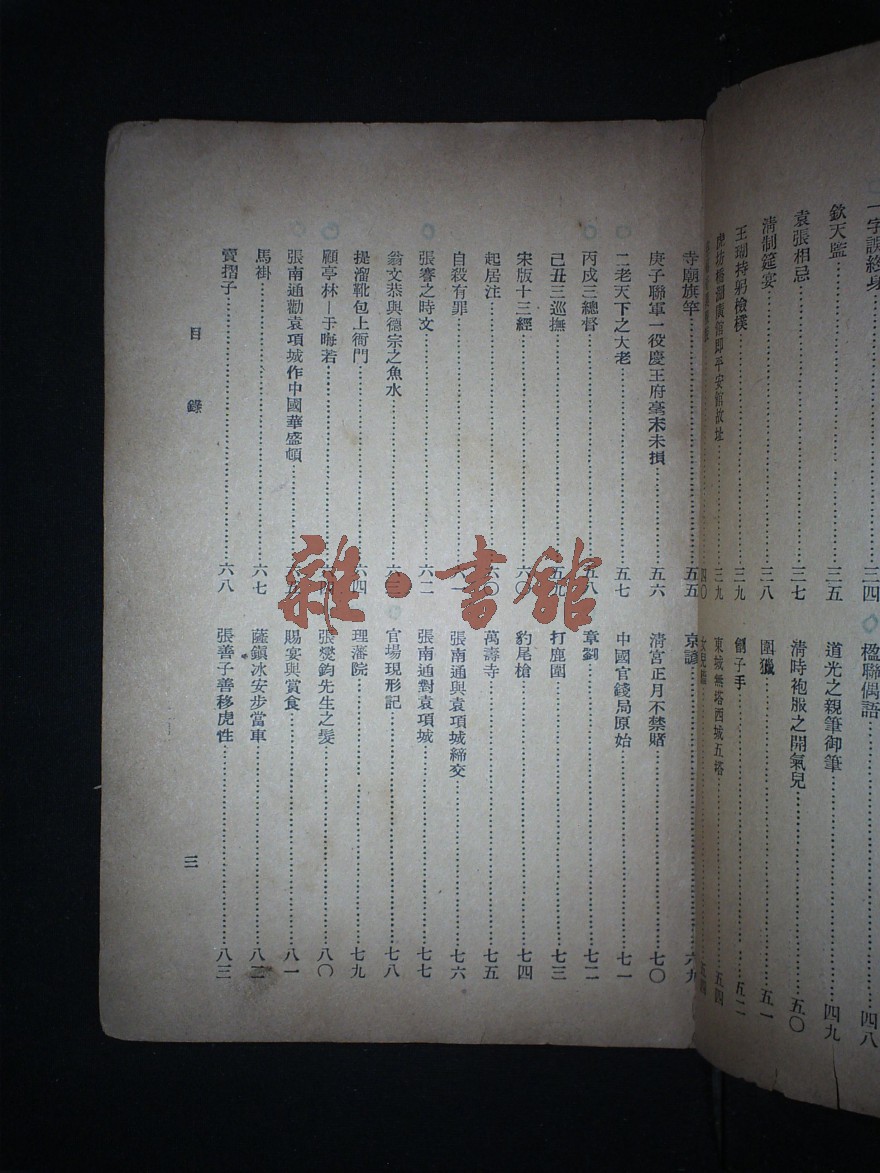 一字誤終身……三四
欽天監……三五
袁張相忌……三七
清制筵宴……三八
王瑚持躬檢樸……三九
虎坊橋湖廣館即平安館故址……三九
四〇
楹聯偶語……四八
道光之親筆御筆……四九
清時袍服之開氣兒……五〇
圍獵……五一
劊子手……五二
東城無塔西城五塔……五四
寺廟旗竿……五五
庚子聯軍一役慶王府毫末未損……五六
二老天下之大老……五七
丙戌三總督……五八
己丑三巡撫……五九
宋版十三經……六〇
起居注……六〇
自殺有罪……六一
張謇之時文……六二
翁文恭與德宗之魚水……六三
提溜靴包上衙門……六四
顧亭林—于晦若……六四
張南通勸袁項城作中國華盛頓……六五
馬褂……六七
賣摺子……六八
京諺……六九
清宮正月不禁賭……七〇
中國官錢局原始……七一
章劉……七二
打鹿圍……七三
豹尾槍……七四
萬壽寺……七五
張南通與袁項城締交……七六
張南通對袁項城……七七
官場現形記……七八
理藩院……七九
張燮鈞先生之髮……八〇
賜宴與賞食……八一
薩鎮冰安步當車……八二
張善子善移虎性……八三
目錄
三
雜·書館